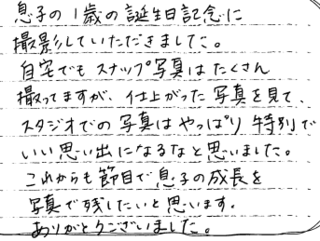 息子の1歳の誕生日記念に
撮影していただきました。
自宅でもスナップ写真はたくさん
撮ってますが、仕上がった写真を見て、
スタジオでの写真はやっぱり特別で
いい思い出になるなと思いました。
これからも節目で息子の成長を
写真で残したいと思います。
ありがとうございました。